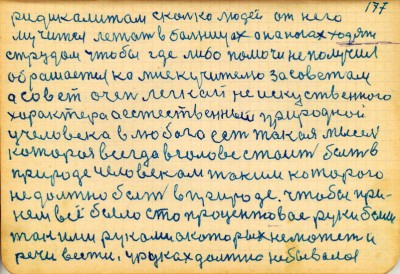 177
радикалитам сколко людей от него
мучится лежат в болницах она ногах ходят
струдом чтобы где либо помочи не получил
обращается ко мне кучителю за советам
а совет очен легкай не искуственного
характера а естественный природной
у человека в любого ест такая мысел
которая всегда в голове стоит быть в
природе человекам таким которого
не должно быть в природе. чтобы при-
нем всё было сто процентовае руки были
такими руками о которых не может и
речи вести, у руках должно не бывалоя